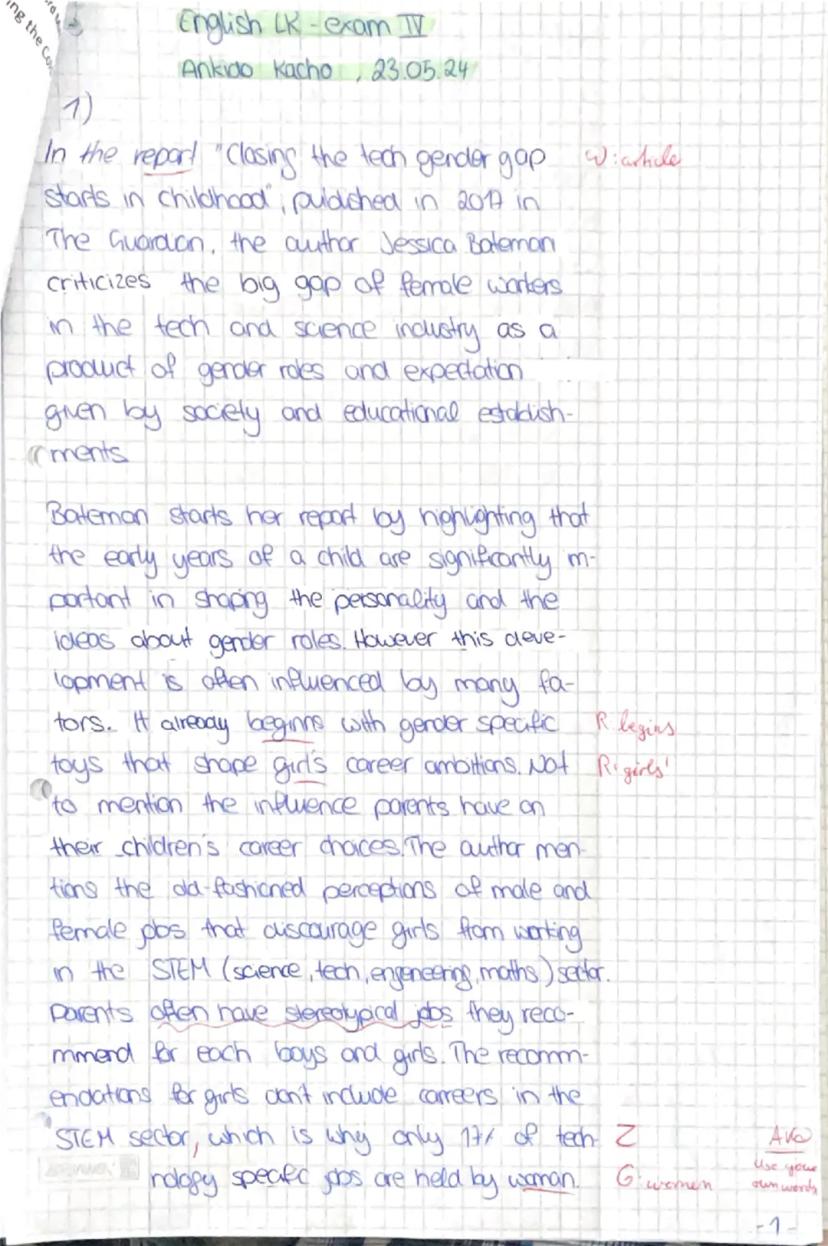 ing the Co
English LK - exam IV
Ankido Kacho, 23.05.24
1)
In the report "Closing the tech gender gap W: article
starts in childhood", published in 2017 in
The Guardian, the author Jessica Bateman
criticizes the big gap of female workers
in the tech and science industry as a
product of gender roles and expectation
given by society and educational establish-
ments
Bateman starts her report by highlighting that
the early years of a child are significantly im-
portant in shaping the personality and the
ideas about gender roles. However this deve-
lopment is often influenced by many fa-
tors. It already beginns with gender specific R begins
toys that shape girl's career ambitions. Not R: girls'
to mention the influence parents have on
their children's career choices. The author men-
tions the old-fashioned perceptions of male and
female jobs that discourage girls from working
in the STEM (science, tech, engeneering, maths) sector.
Parents often have stereotypical jobs they reco-
mmend for each boys and girls. The recomm-
endations for girls don't include carreers in the
STEM sector, which is why only 17% of tech- Z AVO
nology specific jobs are held by woman. G: women use your own words
-1-